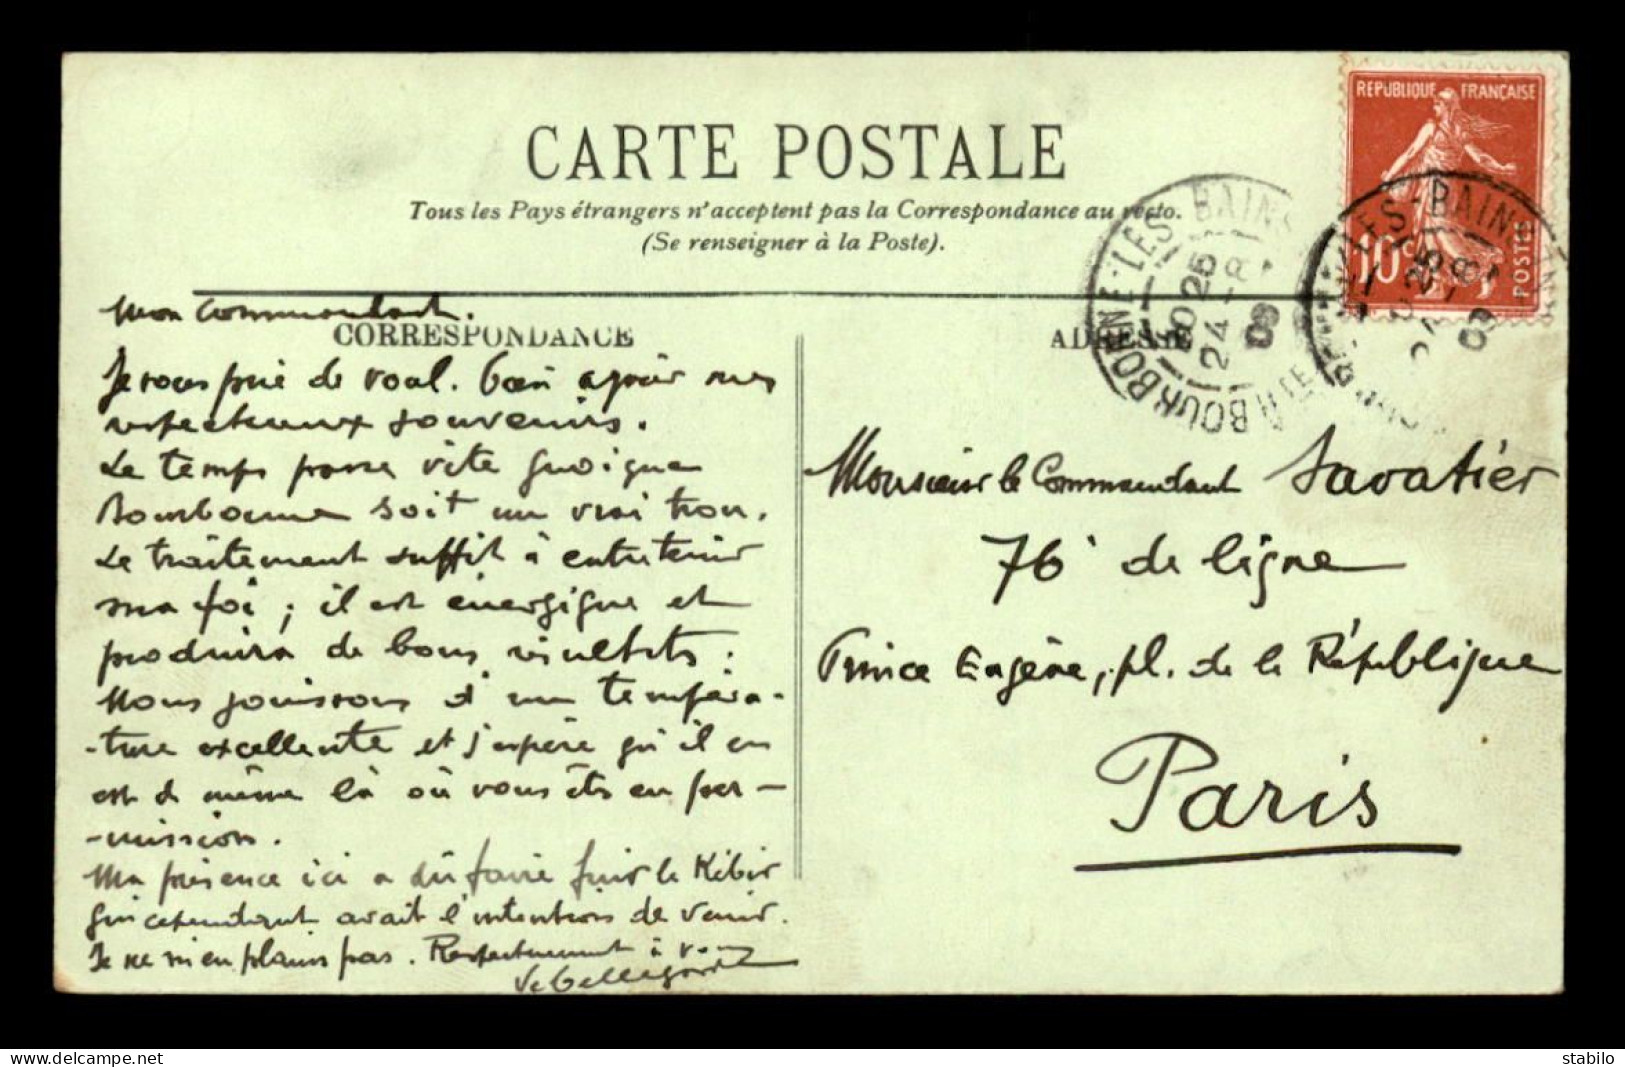 CARTE POSTALE
Tous les Pays étrangers n'acceptent pas la Correspondance au recto.
(Se renseigner à la Poste).
REPUBLIQUE FRANÇAISE
10c POSTES
BOURBONNE-LES-BAINS
20 25
24 -8
08
HTE
CORRESPONDANCE
ADRESSE
Mon Commandant.
Je vous prie de voul. bien agréér mes
respectueux souvenirs.
Le temps passe vite quoique
Bourbonne soit un vrai trou.
Le traitement suffit à entretenir
ma foi ; il est énergique et
produira de bons résultats.
Nous jouissons d'un tempéra-
-ture excellente et j'espère qu'il en
est de même là où vous êtes en per-
-mission.
Ma présence ici a dû faire fuir le Kébir
qui cependant avait l'intention de venir.
Je ne m'en plains pas. Respectueusement à vous
Monsieur le Commandant Savatier
76e de ligne
Prince Eugène, pl. de la République
Paris
delcampe.net
stabilo